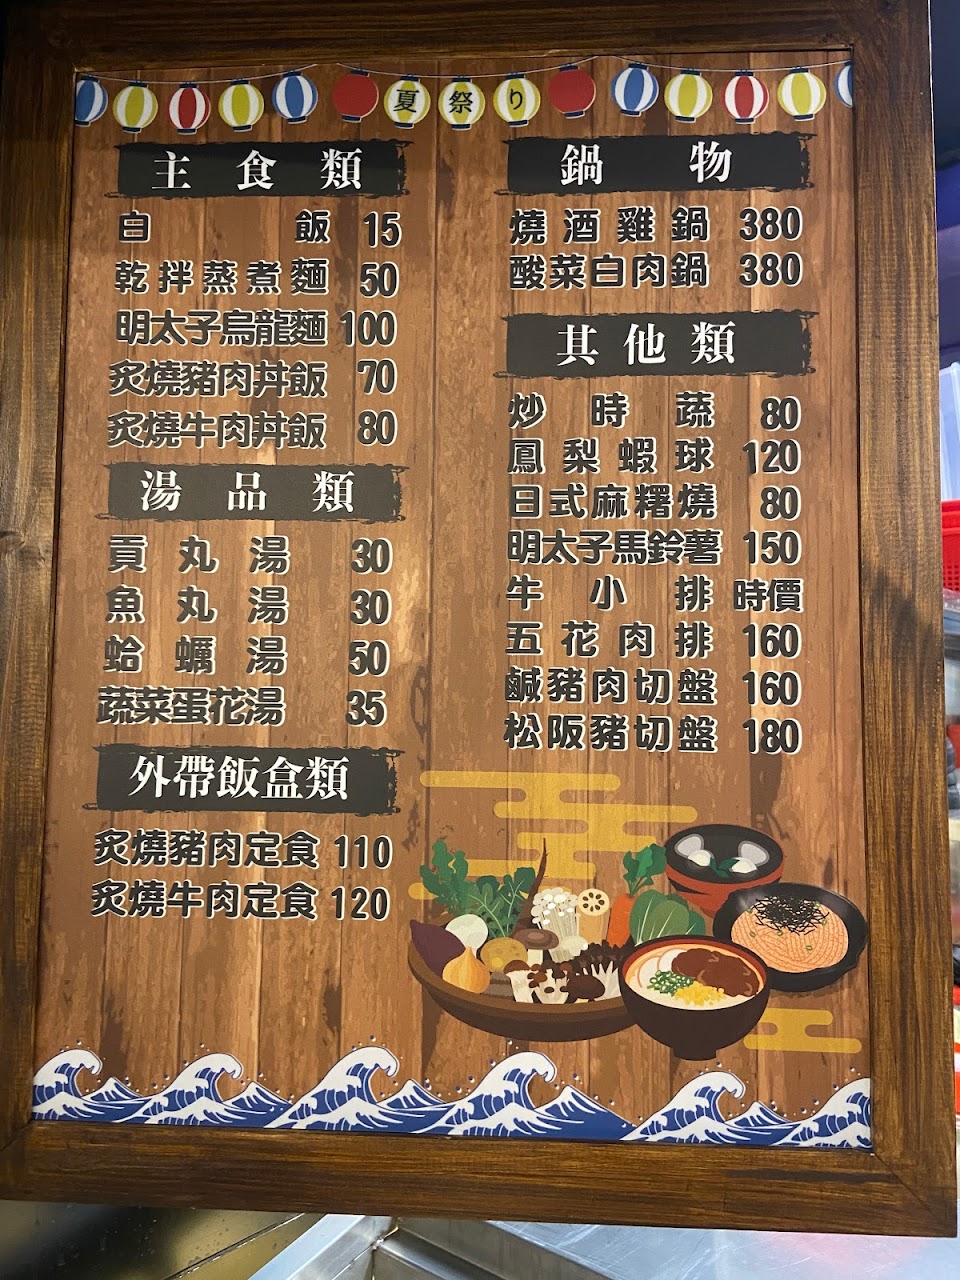 夏祭り
主食類
白飯 15
乾拌蒸煮麵 50
明太子烏龍麵 100
炙燒豬肉丼飯 70
炙燒牛肉丼飯 80
湯品類
貢丸湯 30
魚丸湯 30
蛤蠣湯 50
蔬菜蛋花湯 35
外帶飯盒類
炙燒豬肉定食 110
炙燒牛肉定食 120
鍋物
燒酒雞鍋 380
酸菜白肉鍋 380
其他類
炒時蔬 80
鳳梨蝦球 120
日式麻糬燒 80
明太子馬鈴薯 150
牛小排 時價
五花肉排 160
鹹豬肉切盤 160
松阪豬切盤 180